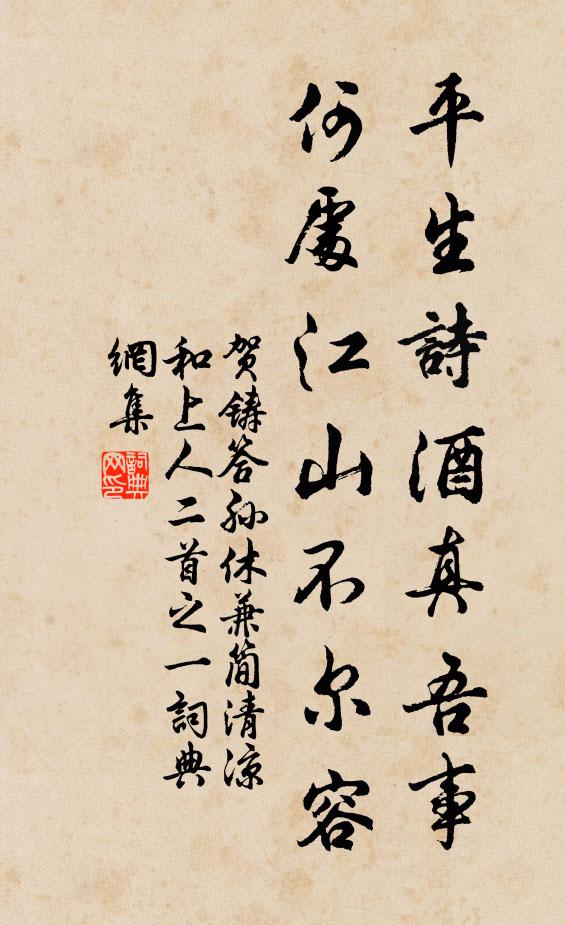 平生詩酒真吾事
何處江山不尔容
贺鑄答孙休兼简清凉
和上人二首之一詞典
網集
詞典
网印